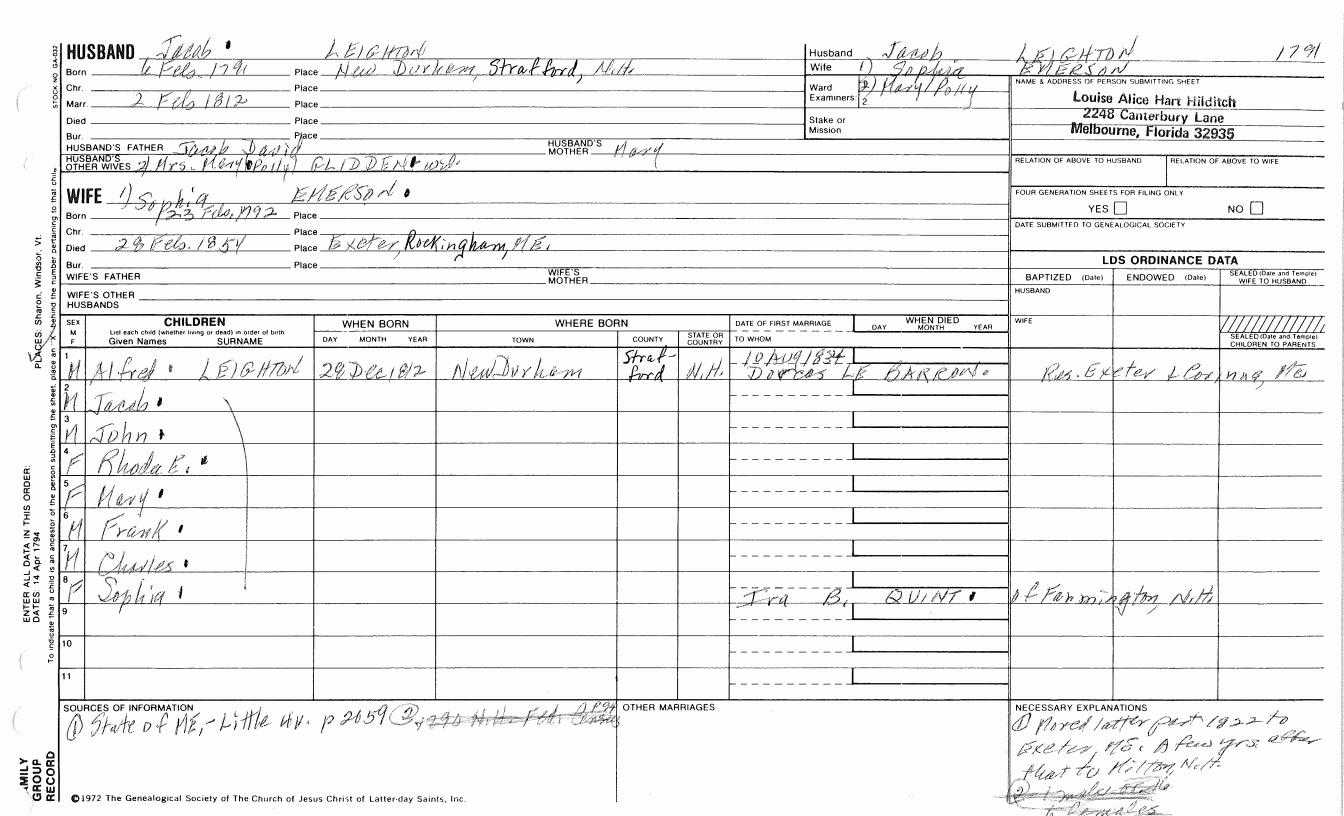 HUSBAND Jacob LEIGHTON
Born 6 Feb. 1791 Place New Durham, Strafford, N.H.
Chr. Place
Marr. 2 Feb 1812 Place
Died Place
Bur. Place
HUSBAND'S FATHER Jacob David HUSBAND'S MOTHER Mary
HUSBAND'S OTHER WIVES 2) Mrs. Mary (Polly) GLIDDEN wid.
WIFE 1) Sophia EMERSON
Born 23 Feb, 1792 Place
Chr. Place
Died 28 Feb. 1854 Place Exeter, Rockingham, ME.
Bur. Place
WIFE'S FATHER WIFE'S MOTHER
WIFE'S OTHER HUSBANDS
Husband Jacob LEIGHTON 1791
Wife 1) Sophia EMERSON
Ward 2) Mary/Polly
Examiners 1 2
Stake or Mission
NAME & ADDRESS OF PERSON SUBMITTING SHEET
Louise Alice Hart Hilditch
2248 Canterbury Lane
Melbourne, Florida 32935
RELATION OF ABOVE TO HUSBAND RELATION OF ABOVE TO WIFE
FOUR GENERATION SHEETS FOR FILING ONLY
YES NO
DATE SUBMITTED TO GENEALOGICAL SOCIETY
LDS ORDINANCE DATA
BAPTIZED (Date) ENDOWED (Date) SEALED (Date and Temple) WIFE TO HUSBAND
HUSBAND
WIFE
SEALED (Date and Temple) CHILDREN TO PARENTS
SEX M F
CHILDREN
List each child (whether living or dead) in order of birth
Given Names SURNAME
WHEN BORN
DAY MONTH YEAR
WHERE BORN
TOWN COUNTY STATE OR COUNTRY
DATE OF FIRST MARRIAGE
TO WHOM
WHEN DIED
DAY MONTH YEAR
1 M Alfred LEIGHTON 28 Dec 1812 New Durham Straf-ford N.H. 10 AUG 1834 Dorcas LE BARRON Res. Exeter & Corinna, Me
2 M Jacob
3 M John
4 F Rhoda E.
5 F Mary
6 M Frank
7 M Charles
8 F Sophia Ira B. QUINT of Farmington, N.H.
9
10
11
SOURCES OF INFORMATION
① State of ME, - Little p 2059 ② 1790 N.H. Fed. Census
OTHER MARRIAGES
NECESSARY EXPLANATIONS
① Moved latter part 1822 to
Exeter, ME. A few yrs. after
that to Milton, N.H.
②
females
©1972 The Genealogical Society of The Church of Jesus Christ of Latter-day Saints, Inc.
STOCK NO. GA-032
PLACES: Sharon, Windsor, Vt.
ENTER ALL DATA IN THIS ORDER:
DATES: 14 Apr 1794
To indicate that a child is an ancestor of the person submitting the sheet, place an "X" behind the number pertaining to that child.
FAMILY GROUP RECORD